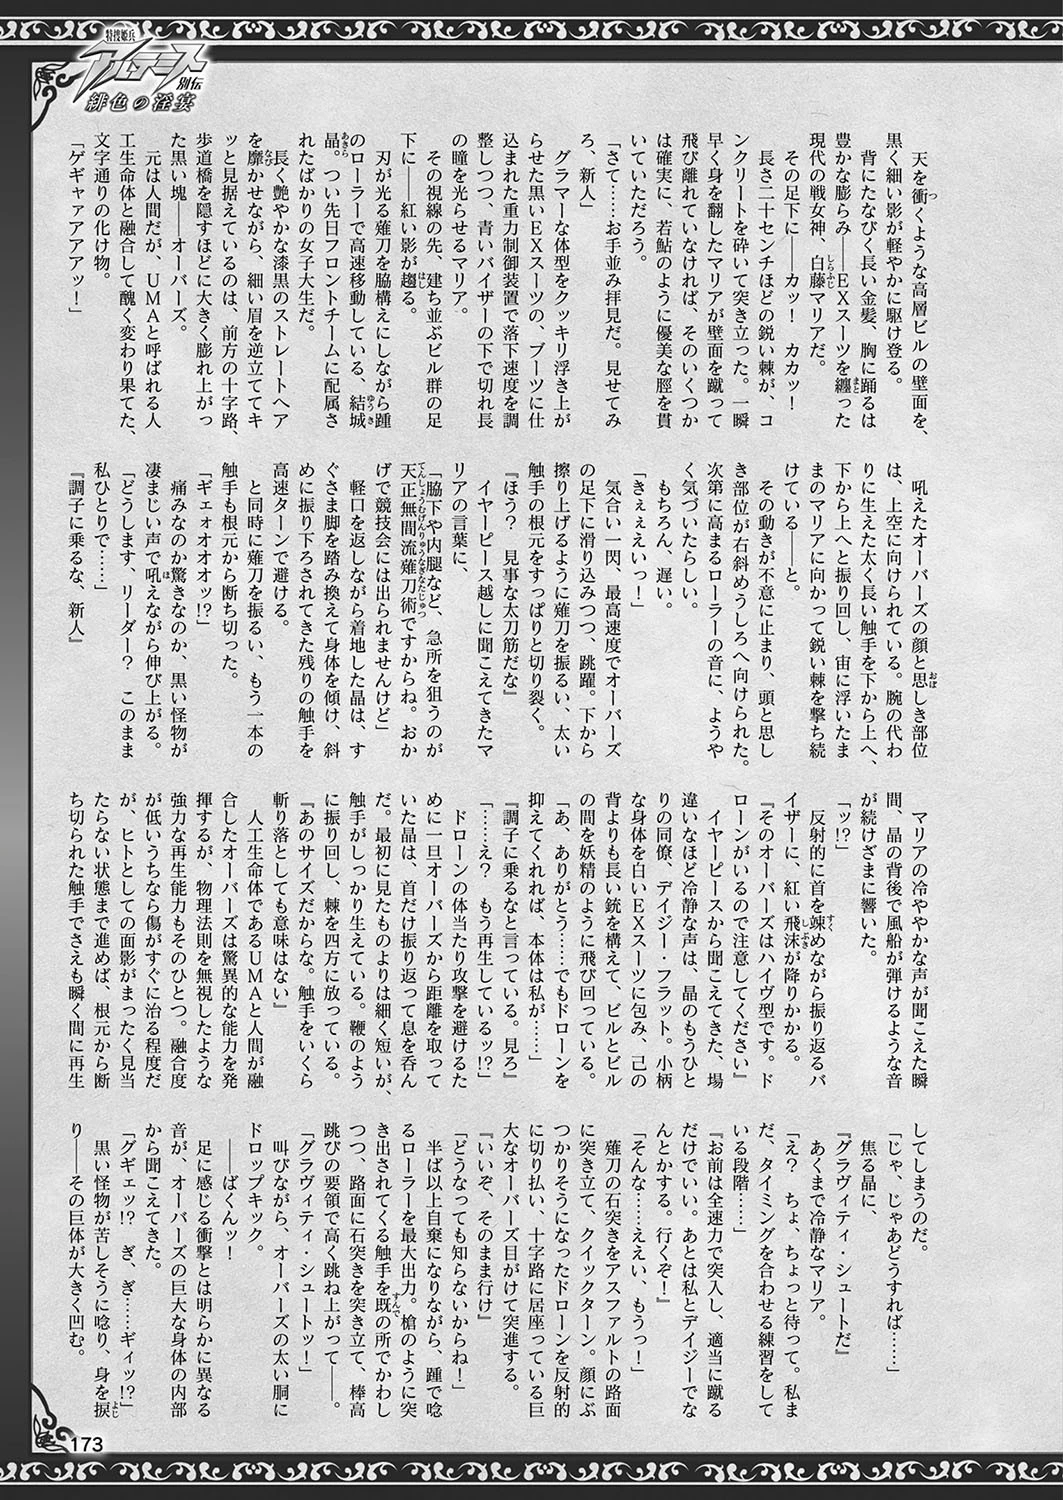 特捜姫兵
アルテミスト
別伝
緋色の淫宴
　天を衝くような高層ビルの壁面を、
黒く細い影が軽やかに駆け登る。
　背にたなびく長い金髪、胸に踊るは
豊かな膨らみ――EXスーツを纏った
現代の戦女神、白藤マリアだ。
　その足下に――カッ！　カカッ！
　長さ二十センチほどの鋭い棘が、コ
ンクリートを砕いて突き立った。一瞬
早く身を翻したマリアが壁面を蹴って
飛び離れていなければ、そのいくつか
は確実に、若鮎のように優美な脛を貫
いていただろう。
「さて……お手並み拝見だ。見せてみ
ろ、新人」
　グラマーな体型をクッキリ浮き上が
らせた黒いEXスーツの、ブーツに仕
込まれた重力制御装置で落下速度を調
整しつつ、青いバイザーの下で切れ長
の瞳を光らせるマリア。
　その視線の先、建ち並ぶビル群の足
下に――紅い影が趨る。
　刃が光る薙刀を脇構えにしながら踵
のローラーで高速移動している、結城
晶。つい先日フロントチームに配属さ
れたばかりの女子大生だ。
　長く艶やかな漆黒のストレートヘア
を靡かせながら、細い眉を逆立ててキ
ッと見据えているのは、前方の十字路、
歩道橋を隠すほどに大きく膨れ上がっ
た黒い塊――オーバーズ。
　元は人間だが、UMAと呼ばれる人
工生命体と融合して醜く変わり果てた、
文字通りの化け物。
「ゲギャアアアアッ！」
　吼えたオーバーズの顔と思しき部位
は、上空に向けられている。腕の代わ
りに生えた太く長い触手を下から上へ、
下から上へと振り回し、宙に浮いたま
まのマリアに向かって鋭い棘を撃ち続
けている――と。
　その動きが不意に止まり、頭と思し
き部位が右斜めうしろへ向けられた。
次第に高まるローラーの音に、ようや
く気づいたらしい。
　もちろん、遅い。
「きぇぇえいっ！」
　気合い一閃、最高速度でオーバーズ
の足下に滑り込みつつ、跳躍。下から
擦り上げるように薙刀を振るい、太い
触手の根元をすっぱりと切り裂く。
『ほう？　見事な太刀筋だな』
　イヤーピース越しに聞こえてきたマ
リアの言葉に、
「脇下や内腿など、急所を狙うのが
天正無間流薙刀術ですからね。おか
げで競技会には出られませんけど」
　軽口を返しながら着地した晶は、す
ぐさま脚を踏み換えて身体を傾け、斜
めに振り下ろされてきた残りの触手を
高速ターンで避ける。
　と同時に薙刀を振るい、もう一本の
触手も根元から断ち切った。
「ギェォオオオッ!?
　痛みなのか驚きなのか、黒い怪物が
凄まじい声で吼えながら伸び上がる。
「どうします、リーダー？　このまま
私ひとりで……」
『調子に乗るな、新人』
　マリアの冷ややかな声が聞こえた瞬
間、晶の背後で風船が弾けるような音
が続けざまに響いた。
「ッ!?」
　反射的に首を竦めながら振り返るバ
イザーに、紅い飛沫が降りかかる。
『そのオーバーズはハイヴ型です。ド
ローンがいるので注意してください』
　イヤーピースから聞こえてきた、場
違いなほど冷静な声は、晶のもうひと
りの同僚、デイジー・フラット。小柄
な身体を白いEXスーツに包み、己の
背よりも長い銃を構えて、ビルとビル
の間を妖精のように飛び回っている。
「あ、ありがとう……でもドローンを
抑えてくれれば、本体は私が……」
『調子に乗るなと言っている。見ろ』
「……え？　もう再生しているッ!?」
　ドローンの体当たり攻撃を避けるた
めに一旦オーバーズから距離を取って
いた晶は、首だけ振り返って息を呑ん
だ。最初に見たものよりは細く短いが、
触手がしっかり生えている。鞭のよう
に振り回し、棘を四方に放っている。
『あのサイズだからな。触手をいくら
斬り落としても意味はない』
　人工生命体であるUMAと人間が融
合したオーバーズは驚異的な能力を発
揮するが、物理法則を無視したような
強力な再生能力もそのひとつ。融合度
が低いうちなら傷がすぐに治る程度だ
が、ヒトとしての面影がまったく見当
たらない状態まで進めば、根元から断
ち切られた触手でさえも瞬く間に再生
してしまうのだ。
「じゃ、じゃあどうすれば……」
　焦る晶に、
『グラヴィティ・シュートだ』
　あくまで冷静なマリア。
「え？　ちょ、ちょっと待って。私ま
だ、タイミングを合わせる練習をして
いる段階……」
『お前は全速力で突入し、適当に蹴る
だけでいい。あとは私とデイジーでな
んとかする。行くぞ！』
「そんな……ええい、もうっ！」
　薙刀の石突きをアスファルトの路面
に突き立て、クイックターン。顔にぶ
つかりそうになったドローンを反射的
に切り払い、十字路に居座っている巨
大なオーバーズ目がけて突進する。
『いいぞ、そのまま行け』
「どうなっても知らないからね！」
　半ば以上自棄になりながら、踵で唸
るローラーを最大出力。槍のように突
き出されてくる触手を既の所でかわし
つつ、路面に石突きを突き立て、棒高
跳びの要領で高く跳ね上がって――。
「グラヴィティ・シュートッ！」
　叫びながら、オーバーズの太い胴に
ドロップキック。
　――ばくんッ！
　足に感じる衝撃とは明らかに異なる
音が、オーバーズの巨大な身体の内部
から聞こえてきた。
「グギェッ!?　ぎ、ぎ……ギィッ!?」
　黒い怪物が苦しそうに唸り、身を捩
り――その巨体が大きく凹む。
173